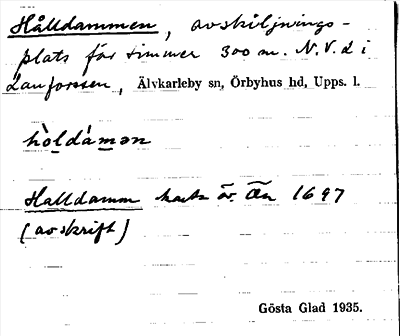 Hålldammen, avskiljnings-
plats för timmer 300 m. N.V. L i
Lanforsen, Älvkarleby sn, Örbyhus hd, Upps. l.
hòldámən
Halldamm karta öv. Än 1697
(avskrift)
Gösta Glad 1935.